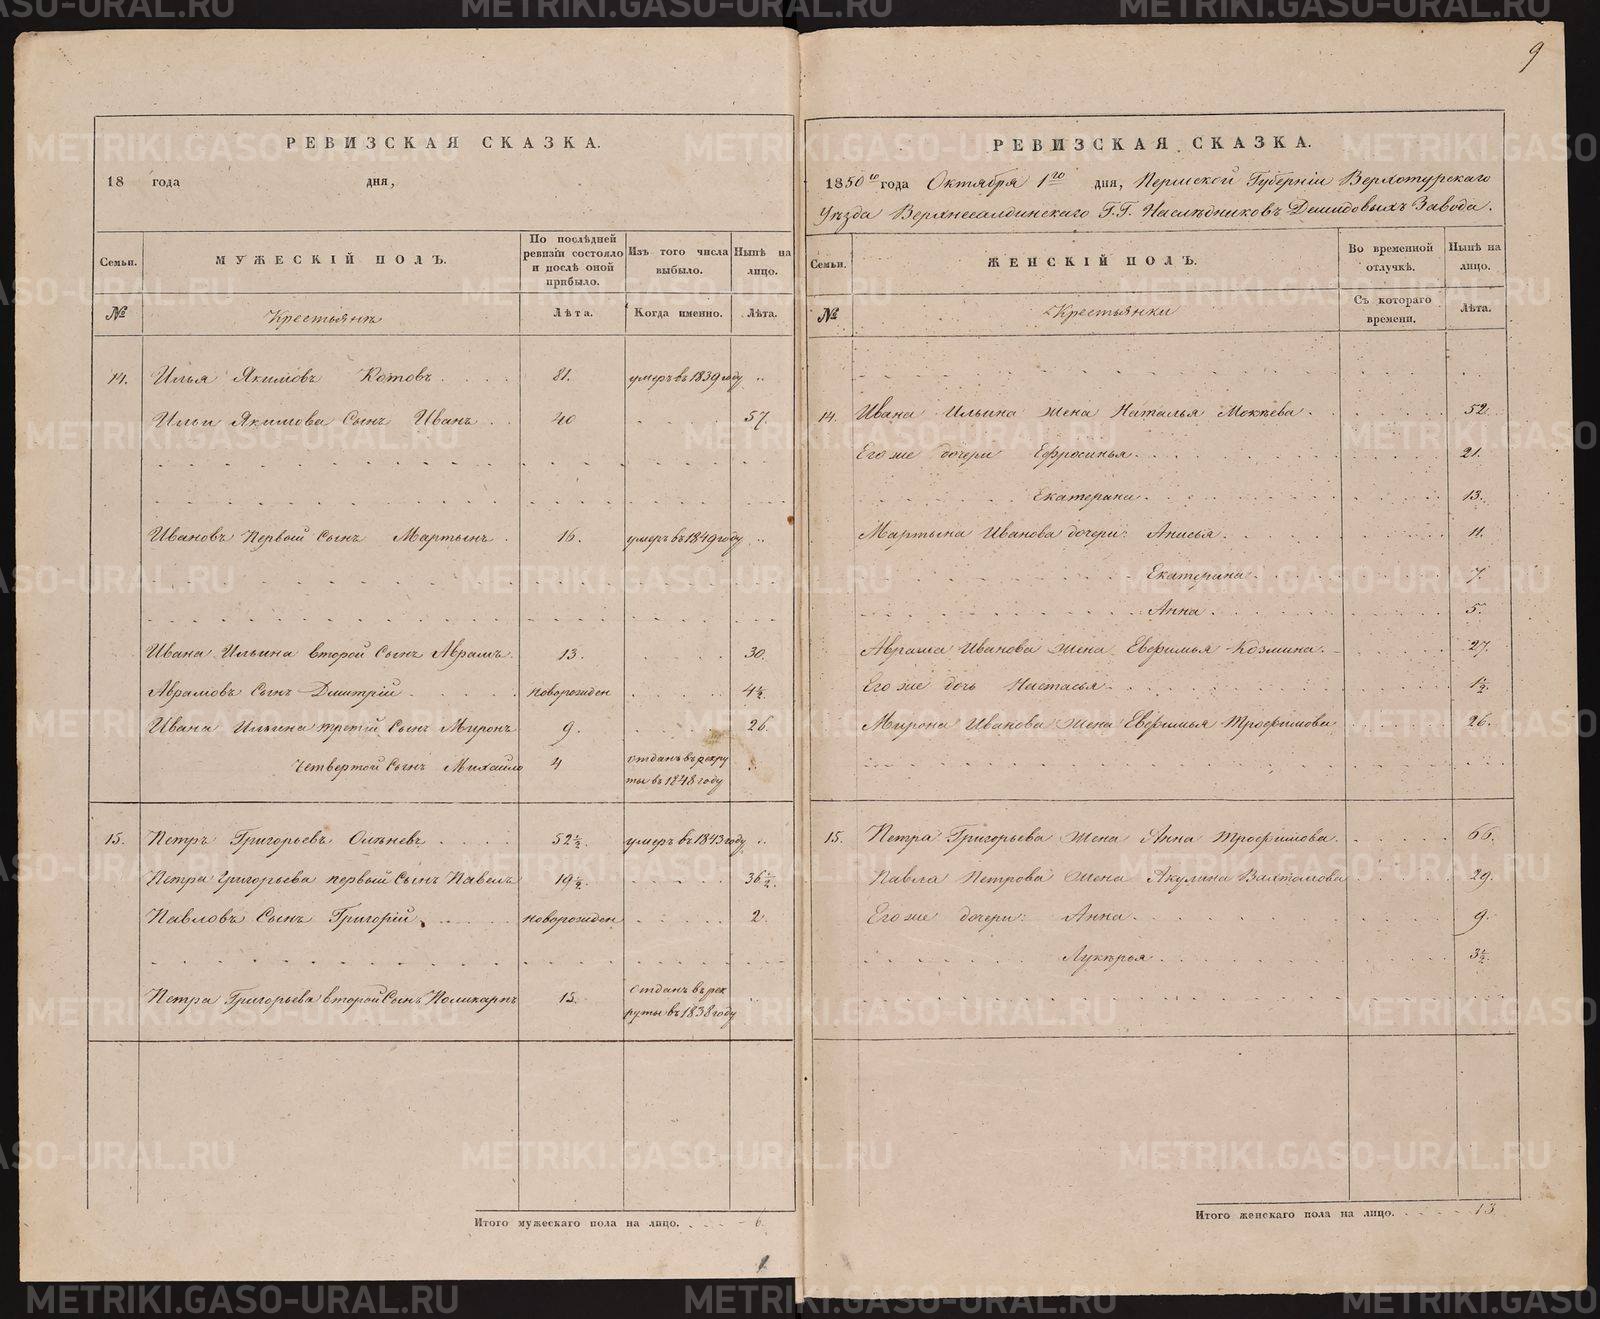 РЕВИЗСКАЯ СКАЗКА.
18 года дня,
Семьи.
МУЖЕСКІЙ ПОЛЪ.
По послѣдней ревизіи состояло и послѣ оной прибыло.
Изъ того числа выбыло.
Нынѣ на лицо.
№
Крестьянъ
Лѣта.
Когда именно.
Лѣта.
14. Илья Якимовъ Котовъ 81. умеръ въ 1839 году
Ильи Якимова Сынъ Иванъ 40 57.
Ивановъ Первой Сынъ Мартынъ 16. умеръ въ 1849 году
Ивана Ильина второй Сынъ Абрамъ 13. 30.
Абрамовъ Сынъ Дмитрій новорожден 4½.
Ивана Ильина третій Сынъ Миронъ 9. 26.
Четвертой Сынъ Михайло 4 отданъ въ рекру
ты въ 1848 году
15. Петръ Григорьевъ Олѣневъ 52½. умеръ въ 1843 году
Петра Григорьева первый Сынъ Павелъ 19½. 36½.
Павловъ Сынъ Григорій новорожден 2.
Петра Григорьева второй Сынъ Поликарпъ 15. отданъ въ рек
руты въ 1838 году
Итого мужескаго пола на лицо. 6.
9
РЕВИЗСКАЯ СКАЗКА.
1850го года Октября 1го дня, Пермской Губерніи Верхотурскаго
Уѣзда Верхнесалдинскаго Г.Г. Наслѣдниковъ Демидовыхъ Завода.
Семьи.
ЖЕНСКІЙ ПОЛЪ.
Во временной отлучкѣ.
Нынѣ на лицо.
№
Крестьянки
Съ котораго времени.
Лѣта.
14. Ивана Ильина жена Наталья Мокѣева 52.
Его же дочери Ефросинья 21.
Екатерина 13.
Мартына Иванова дочери: Анисья 11.
Екатерина 7.
Анна 5.
Абрама Иванова жена Евфимья Козмина 27.
Его же дочь Настасья 1½.
Мирона Иванова жена Евфимья Трофимова 26.
15. Петра Григорьева жена Анна Трофимова 66.
Павла Петрова жена Акулина Вахтомова 29.
Его же дочери: Анна 9.
Лукѣрья 3½.
Итого женскаго пола на лицо. 13.
METRIKI.GASO-URAL.RU